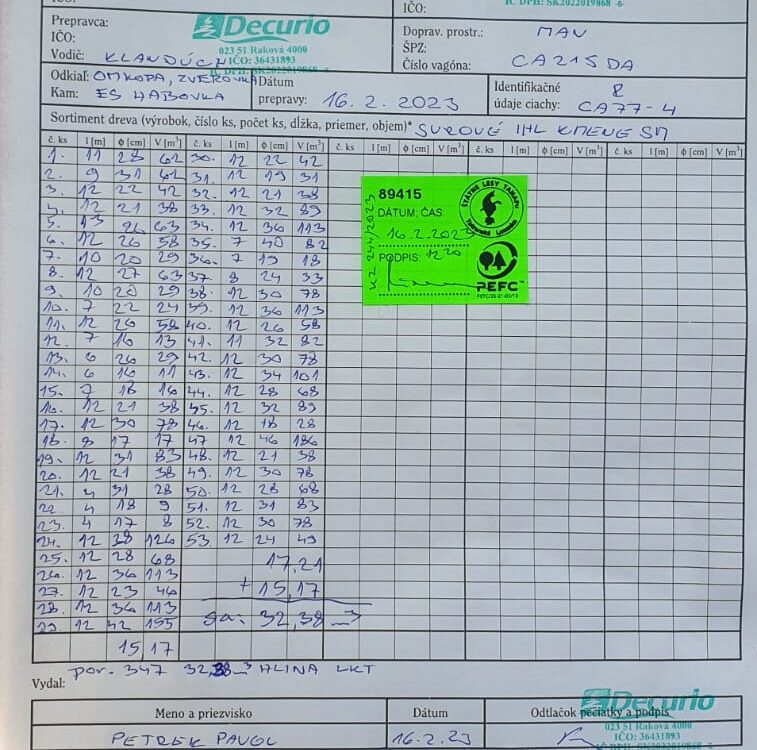 IČO:
IČO:
IČ DPH: SK2022019868 -6-
Prepravca:
Decurio
IČO:
023 51 Raková 4000
IČO: 36431893
Vodič: KLANDÚCH
IČ DPH: SK2022019868 -6-
Doprav. prostr.: MAN
ŠPZ:
Číslo vagóna: CA215DA
Odkiaľ: OMKOPA, ZVEROVKA
Kam: ES HABOVKA
Dátum
prepravy: 16.2.2023
Identifikačné
údaje ciachy: CA77-4
Sortiment dreva (výrobok, číslo ks, počet ks, dĺžka, priemer, objem)* SUROVÉ IHL KMENE SM
č. ks l [m] ϕ [cm] V [m³] č. ks l [m] ϕ [cm] V [m³] č. ks l [m] ϕ [cm] V [m³] č. ks l [m] ϕ [cm] V [m³] č. ks l [m] ϕ [cm] V [m³]
1. 11 28 62 30. 12 22 42
2. 9 31 62 31. 12 19 31
3. 12 22 42 32. 12 21 38
4. 12 21 38 33. 12 32 89
5. 13 26 63 34. 12 36 113
6. 12 26 58 35. 7 40 82
7. 10 20 29 36. 7 19 18
8. 12 27 63 37. 8 24 33
9. 10 20 29 38. 12 30 78
10. 7 22 24 39. 12 36 113
11. 12 26 58 40. 12 26 58
12. 7 16 13 41. 11 32 82
13. 6 26 29 42. 12 30 78
14. 6 16 11 43. 12 34 101
15. 7 18 16 44. 12 28 68
16. 12 21 38 45. 12 32 89
17. 12 30 78 46. 12 18 28
18. 8 17 17 47 12 46 186
19. 12 31 83 48. 12 21 38
20. 12 21 38 49. 12 30 78
21. 4 31 28 50. 12 28 68
22. 4 18 9 51. 12 31 83
23. 4 17 8 52. 12 30 78
24. 12 38 126 53. 12 24 49
25. 12 28 68 17,21
26. 12 36 113
27. 12 23 46 + 15,17
28. 12 36 113 Sa: 32,38 m3
29 12 42 155
15,17
89415
DÁTUM: ČAS
16.2.2023
PODPIS: 1220
ŠTÁTNE LESY TANAPu
Tatranská Lomnica
PEFC
KZ 244/2023
por. 347 32,38 m3 HLINA LKT
Vydal:
Meno a priezvisko Dátum Odtlačok pečiatky a podpis
Decurio
PETREK PAVOL 16.2.23
023 51 Raková 4000
IČO: 36431893